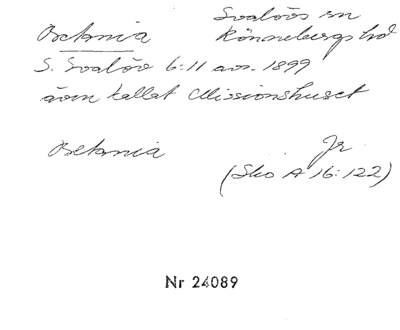 Betania Svalövs sn
Rönnebergs hd
S. Svalöv 6:11 avs. 1899
även kallat Missionshuset
Betania Jr
(Sko A 16:122)
Nr 24089